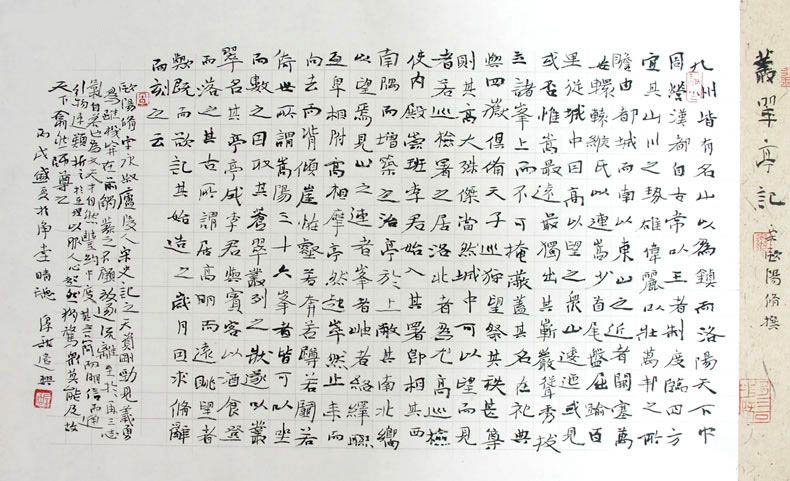 叢翠亭記 宋歐陽脩撰
九州皆有名山以為鎮而洛陽天下中
周營漢都自古常以王者制度臨四方
宜其山川之勢雄偉麗以壯萬邦之所
瞻由都城而南以東山之近者闕塞萬
安轘轅緱氏以連嵩少首尾盤屈踰百
里從城中因高以望之眾山逶迤或見
或否惟嵩最遠最獨出其嶄巖聳秀拔
立諸峯上而不可掩蔽蓋其名在祀典
與四嶽俱備天子巡狩望祭其秩甚尊
則其高大殊傑當然城中可以望而見
者若巡檢署之居洛北者為尤高巡檢
使內殿崇班李君始入其署即相其西
南隅而增築之治亭於上敞其南北嚮
以望焉見山之連者峯者岫者絡繹聯
亙卑相附高相摩亭然起崒然止來而
向去而背傾崖怪壑若奔若蹲若鬭若
倚世所謂嵩陽三十六峯者皆可以坐
而數之因取其蒼翠叢列之狀遂以叢
翠名其亭亭成李君與賓客以酒食登
而落之其古所謂居高明而遠眺望者
歟既而欲記其始造之歲月因求脩辭
而刻之云
歐陽脩字永叔廬陵人宋史記之天資剛勁見義勇
為雖機穽在前觸發之不顧放逐流離至於再三志
氣自若也為文天才自然豐約中度其言簡而明信而通
引物連類折之於至理以服人心超然獨騖眾莫能及故
天下翕然師尊之
丙戌盛夏於淨